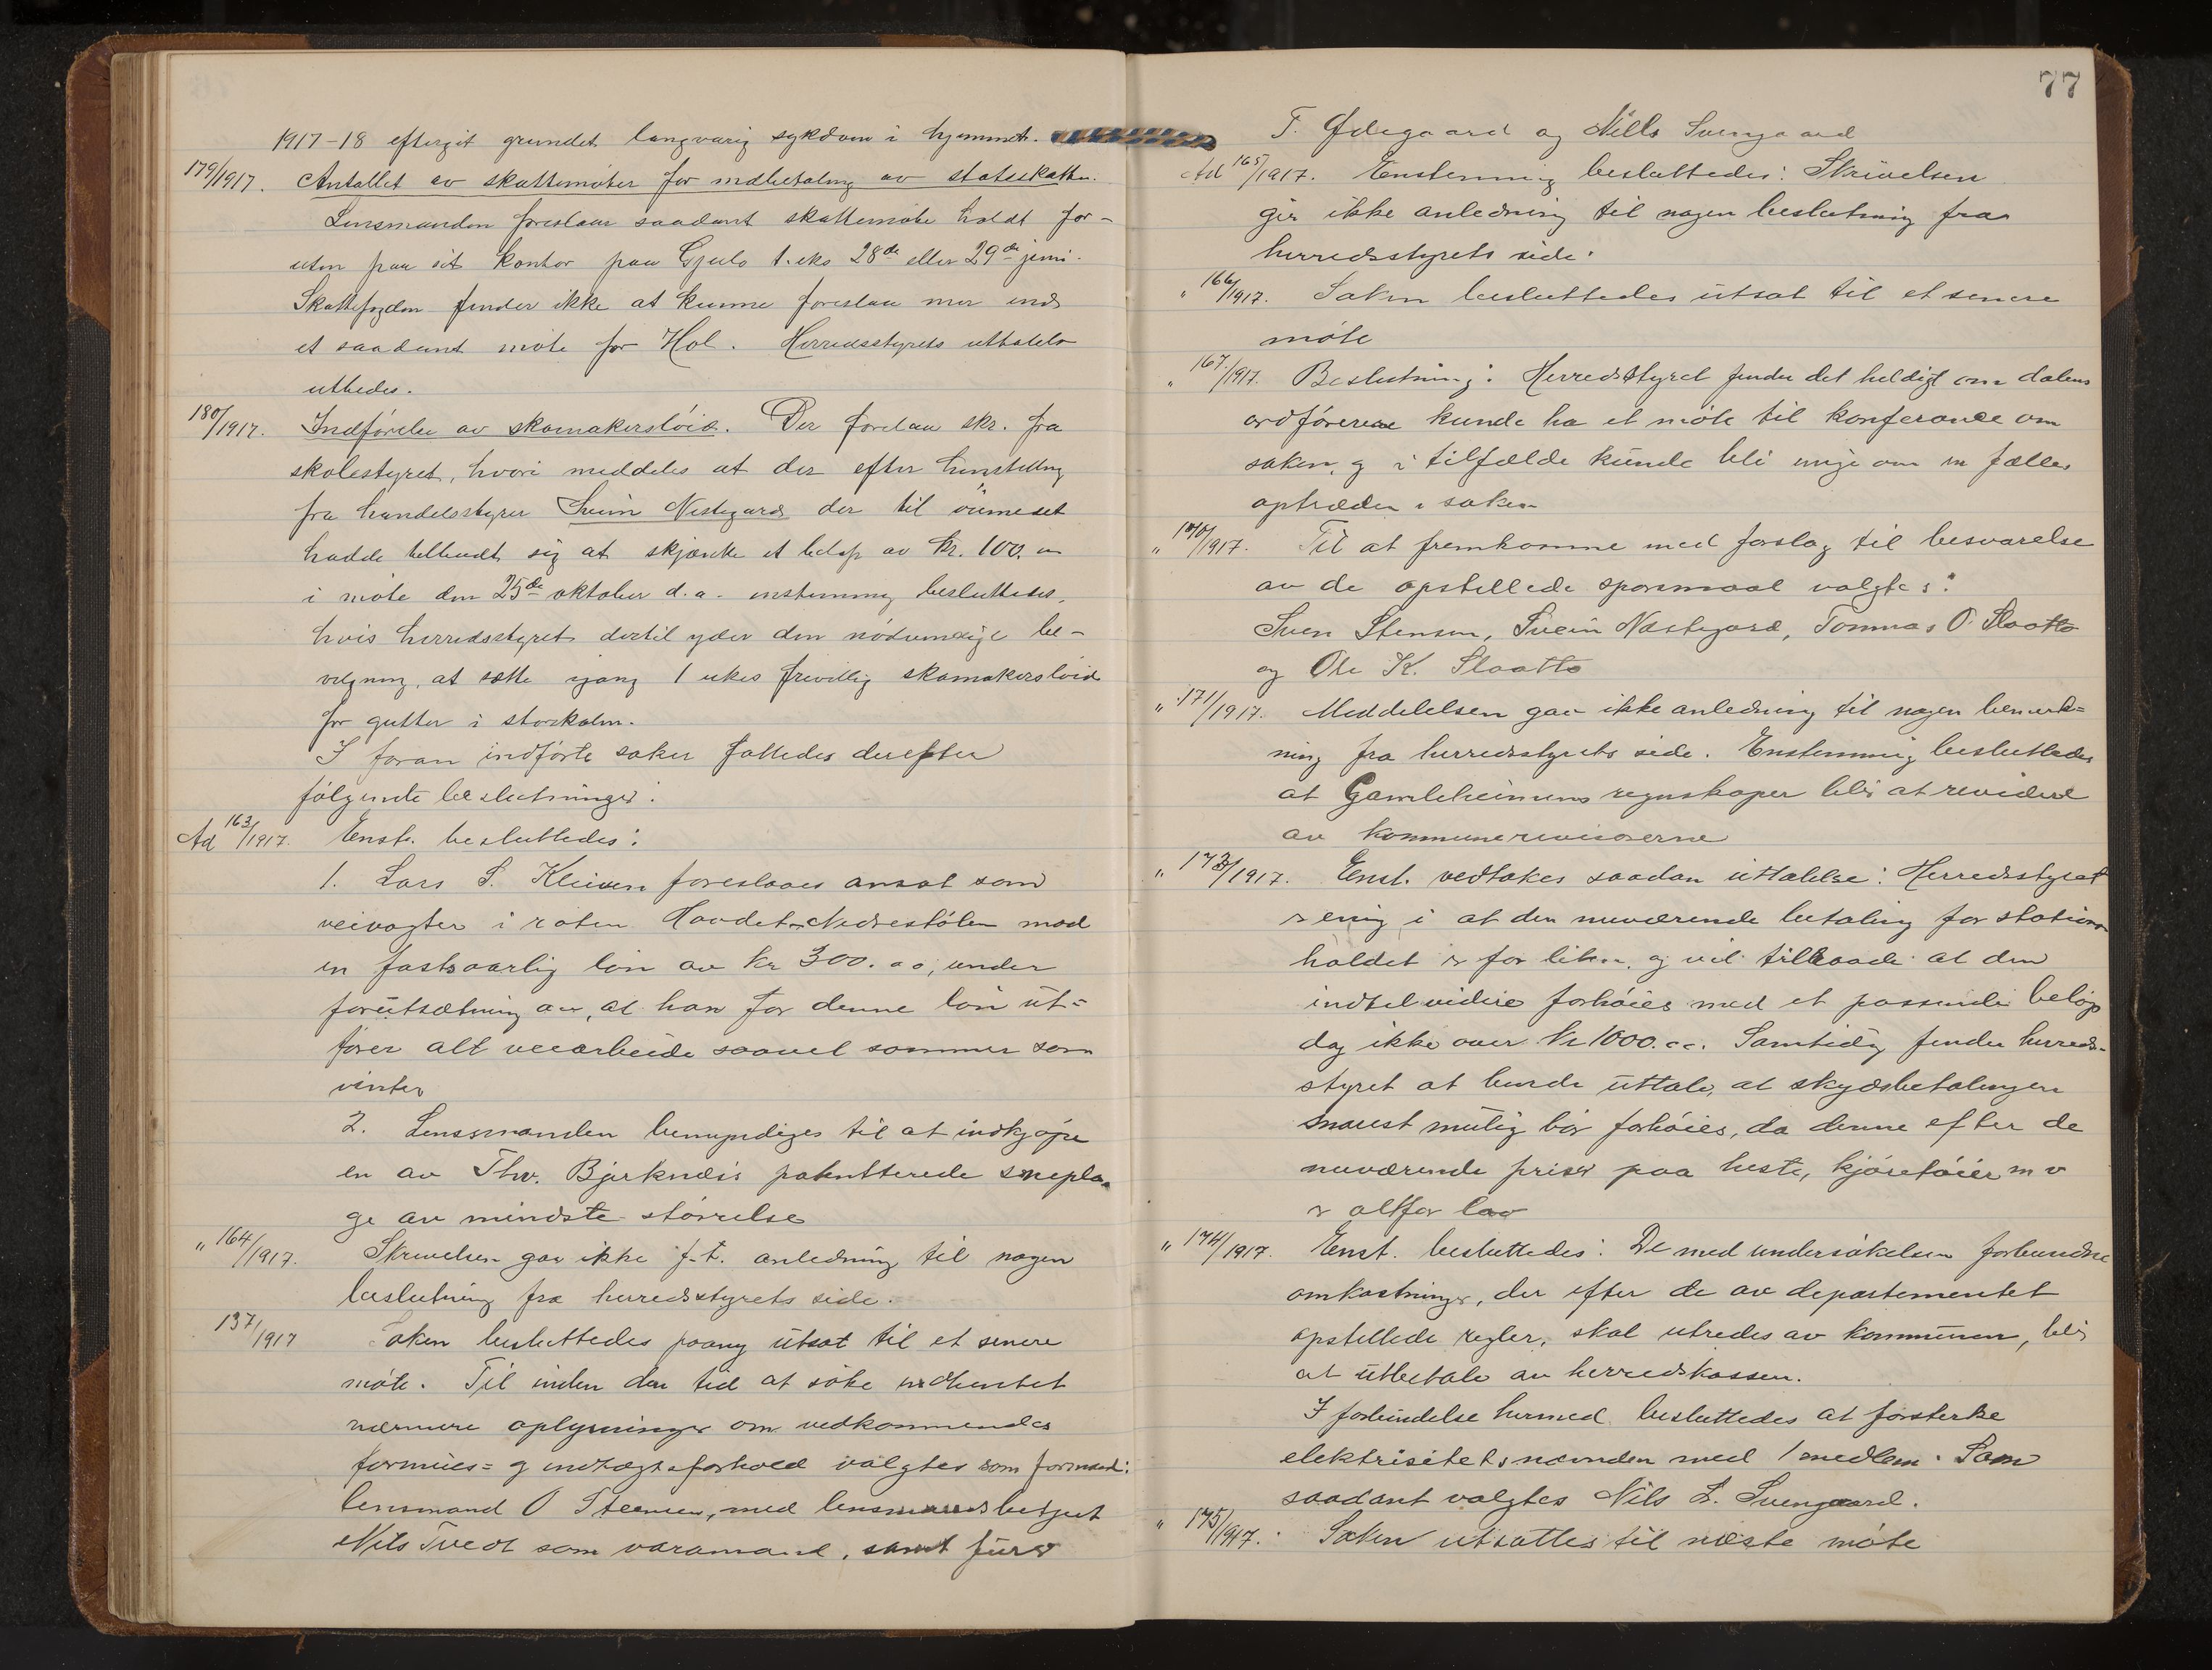 1917-18 eftergit grundet langvarig sykdom i hjemmet.
179/1917. Antallet av skattemøter for indbetaling av statsskatten.
Lensmanden foreslaar saadant skattemøte holdt for-
uten paa sit kontor paa Gjeilo t. eks 28de eller 29de juni.
Skattefogden finder ikke at kunne foreslaa mer end
et saadant møte for Hol. Herredsstyrets uttalelse
utbedes.
180/1917. Indførelse av skomakersløid. Der forelaa skr. fra
skolestyret, hvori meddeles at der efter henstilling
fra handelsstyrer Svein Nestegard der til øiemedet
hadde tilbudt sig at skjænke et beløp av kr. 100.
i møte den 25de oktober d.a. enstemmig besluttedes,
hvis herredsstyret dertil yder den nødvendige be-
vilgning, at sætte igang 1 ukes frivillig skomakersløid
for gutter i storskolen.
I foran indførte saker fattedes derefter
følgende beslutninger:
Ad 163/1917. Enst. besluttedes:
1. Lars S. Kleiven foreslaaes ansat som
veivogter i roten Hovdet-Nedrestølen mod
en fastsaarlig løn av kr 300.00, under
forutsætning av, at han for denne løn ut-
fører alt veiarbeide saavel sommer som
vinter
2. Lensmanden bemyndiges til at indkjøpe
en av Thv. Bjerknæs patenterede sneplo-
ge av mindste størrelse
" 164/1917. Skrivelsen gav ikke f.t. anledning til nogen
beslutning fra herredsstyrets side.
137/1917 Saken besluttedes paany utsat til et senere
møte. Til inden den tid at søke indhentet
nærmere oplysninger om vedkommendes
formues- og indtægtsforhold valgtes som formand:
lensmand O Steensen, med lensmandsbetjent
Nils Tvedt som varamand, samt
77
T. Ødegaard og Nills Svengaard
Ad 165/1917. Enstemmig besluttedes: Skrivelsen
gir ikke anledning til nogen beslutning fra
herredsstyrets side.
" 166/1917. Saken besluttedes utsat til et senere
møte
" 167/1917. Beslutning: Herredsstyret finder det heldigt om dalens
ordførerene kunde ha et møte til konferance om
saken, og i tilfælde kunde bli enige om en fælles
optræden i saken
" 170/1917. Til at fremkomme med forslag til besvarelse
av de opstillede spørsmaal valgtes:
Sven Stensen, Svein Næstegard, Tommas O. Slaatto
og Ole K. Slaatto
" 171/1917. Meddelelsen gav ikke anledning til nogen bemerk=
ning fra herredsstyrets side. Enstemmig besluttedes
at Gamleheimens regnskaper blir at revidere
av kommunerevisorerne
" 173/1917. Enst. vedtokes saadan uttalelse: Herredsstyret
er enig i at den nuværende betaling for stations-
holdet er for liten, og vil tilraade at den
indtil videre forhøies med et passende beløp
dog ikke over kr 1000.00. Samtidig finder herreds-
styret at burde uttale, at skydsbetalingen
snarest mulig bør forhøies, da denne efter de
nuværende priser paa heste, kjøretøier m v
er altfor lav
" 174/1917. Enst. besluttedes: De med undersøkelsen forbundne
omkostninger, der efter de av departementet
opstillede regler, skal utredes av kommunen, blir
at utbetale av herredskassen.
I forbindelse hermed besluttedes at forsterke
elektrisitetsnævnden med 1 medlem. Som
saadant valgtes Nils L. Svengaard.
" 175/1917. Saken utsattes til næste møte